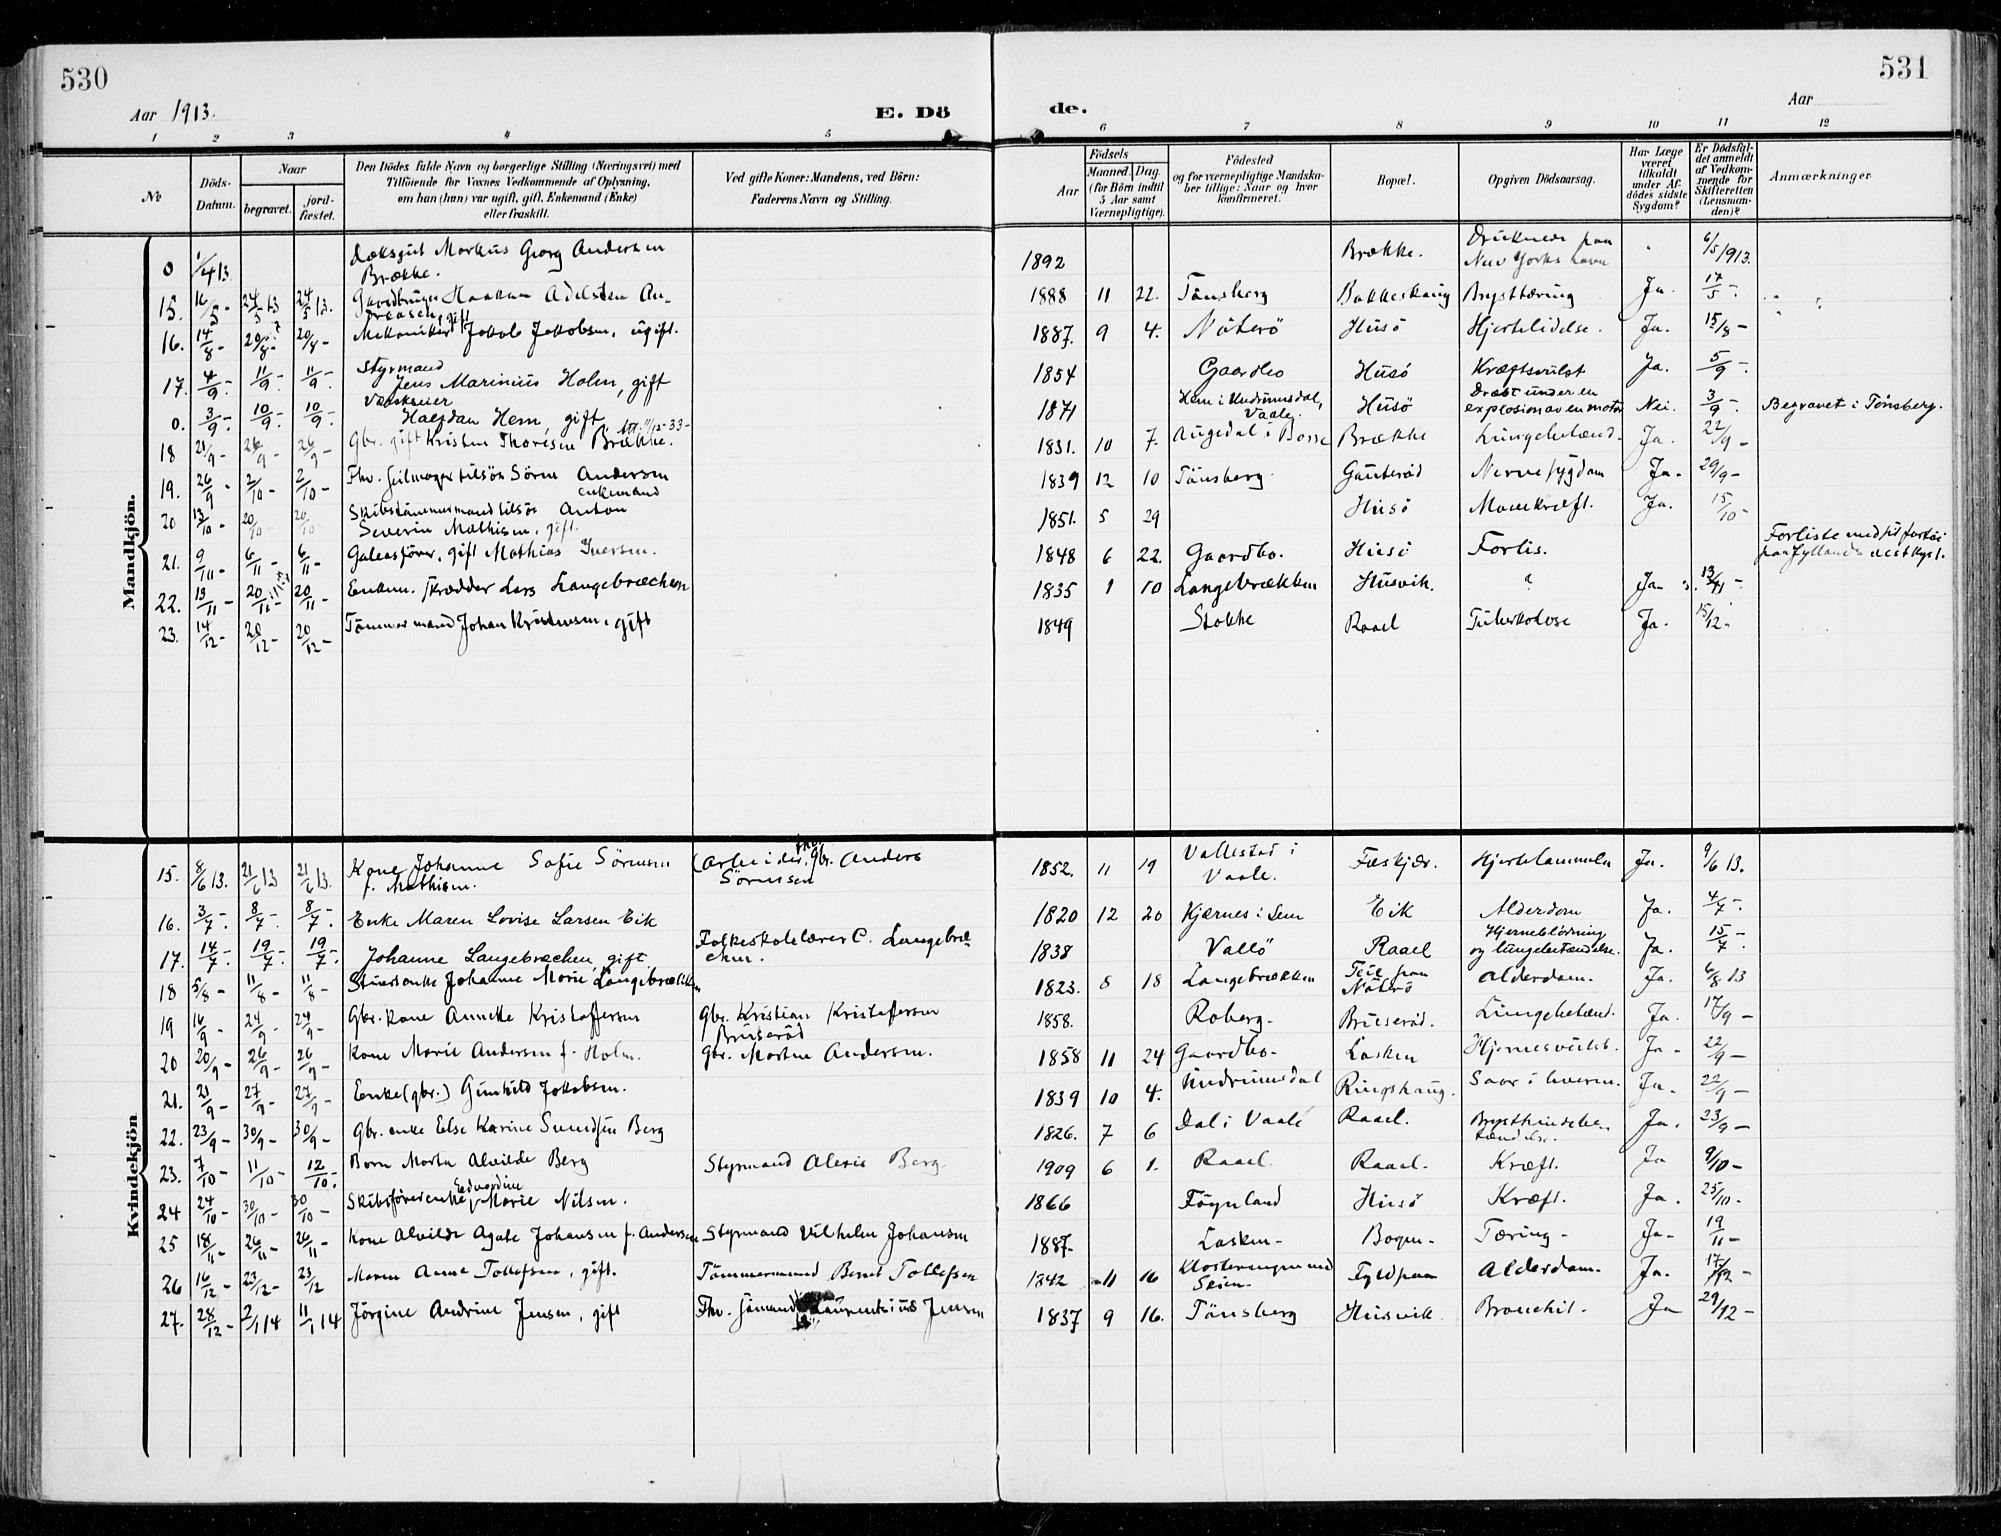 530
531
Aar 1913.
E. Dö
de.
Aar
1 2 3 4 5 6 7 8 9 10 11 12
No
Döds-Datum.
Naar
begravet.
jord-fæstet.
Den Dödes fulde Navn og borgerlige Stilling (Næringsvei) med
Tilföiende for Voxnes Vedkommende af Oplysning,
om han (hun) var ugift, gift, Enkemand (Enke)
eller fraskilt.
Ved gifte Koner: Mandens, ved Börn:
Faderens Navn og Stilling.
Födsels
Aar
Maaned. Dag.
(for Börn indtil
5 Aar samt
Værnepligtige).
Födested
og for værnepligtige Mandska-
ber tillige: Naar og hvor
konfirmeret.
Bopæl.
Opgiven Dödsaarsag.
Har Læge
været
tilkaldt
under Af-
dödes sidste
Sygdom?
Er Dödsfal-
det anmeldt
af Vedkom-
mende for
Skifteretten
(Lensman-
den)?
Anmærkninger
Mandkjön.
0 1/4 13 Dæksgut Markus Georg Andersen Brække. 1892 Brække. Druknede paa New Yorks havn 6/5 1913.
15. 16/5 - 24/5 13 24/5 13. Gaardbruger Haakon Adelsten Andreasen, gift 1888 11 22. Tönsberg Bakkeskaug Brysttæring Ja. 17/5 -
16. 14/8 - 20/8 - 20/8 - Mekaniker Jakob Jakobsen, ugift. 1887. 9 4. Nöterö Husö Hjertelidelse. Ja. 15/8 -
17. 4/9 - 11/9 - 11/9 - Styrmand Jens Marinius Holm, gift 1854 Gaardbo Husö Kræftsvulst Ja. 5/9 -
0. 3/9 - 10/9 - 10/9 - Værkseier Halfdan Hem, gift. 1871 Hem i Undrumsdal, Vaale. Husö Dræbt under en explosion av en motor Nei. 3/9 - Begravet i Tönsberg.
18 21/9 - 26/9 - 26/9 - Gbr. gift Kristen Thoresen Brække. 1831. 10 7. Brække Lungebetænd. Ja. 22/9 -
19. 26/9 - 2/10 - 2/10 - Fhv. Seilmager tilsös Sören Andersen enkemand 1839 12 10 Tönsberg. Gauteröd Nervesygdom Ja. 29/9 -
20 13/10 - 20/10 - 20/10 - Skibstömmermand tilsös Anton Severin Mathisen, gift. 1851. 5 29 Husö Mavekræft. Ja. 15/10 -
21. 9/11 - 6/11 - 6/11 - Galeasförer, gift Mathias Iversen. 1848 6 22. Gaardbo. Husö Forlis. Forliste med sit fartöi paa Jyllands vestkyst.
22. 13/11 - 20/11 - 20/11 - Enkem. skrædder Lars Langebræchen 1835 1 10 Langebrækken Husvik. ? Ja 13/11 -
23. 14/12 - 20/12 - 20/12 - Tömmermand Johan Kristensen, gift 1849 Stokke Raael Tuberkolose Ja. 15/12 -
Kvindekjön
15. 8/6 13. 21/6 13 21/6 13. Kone Johanne Sofie Sörensen f. Mathisen. (Arbeider, fhv. gbr. Anders Sörensen 1852. 11 19 Vallestad i Vaale. Fæskjær. Hjertelammelse Ja. 9/6 13.
16. 3/7 - 8/7 - 8/7 - Enke Maren Lovise Larsen Eik 1820 12 20 Kjærnes i Sem Eik Alderdom Ja. 4/7 -
17. 14/7 - 19/7 - 19/7 - Johanne Langebræchen, gift Folkeskolelærer C. Langebræchen. 1838 Vallö Raael Hjerneblödning og lungebetændelse. Ja. 15/7 -
18 5/8 - 11/8 - 11/8 - Stuertenke Johanne Marie Langebrækken 1823. 8 18 Langebrækken Teie paa Nöterö Alderdom. Ja. 6/8 13
19 16/9 - 24/9 - 24/9 - Gbr. kone Annette Kristoffersen Gbr. Kristian Kristoffersen Bruseröd 1858. Roberg. Bruseröd. Lungebetænd. Ja. 17/9 -
20 20/9 - 26/9 - 26/9 - Kone Marie Andersen f. Holm. Gbr. Morten Andersen. 1858 11 24 Gaardbo. Lasken Hjernesvulst. Ja - 22/9 -
21. 21/9 - 27/9 - 27/9 - Enke (gbr.) Gunhild Jakobsen. 1839 10 4. Undrumsdal Ringshaug. Saar i leveren. Ja. 22/9 -
22. 23/9 - 30/9 - 30/9 - Gbr. enke Else Karine Svendsen Berg 1826. 7 6 Dal i Vaale Raael. Brysthindebetændelse. Ja. 23/9 -
23. 7/10 - 11/10 - 12/10 - Barn Marta Alvilde Berg Styrmand Alexis Berg. 1909 6 1. Raael. Raael. Kræft. Ja 9/10 -
24 24/10 - 30/10 - 30/10 - Skibsförerenke Edvardine Marie Nilsen. 1866 Föynland Husö Kræft. Ja. 25/10 -
25 18/11 - 26/11 - 26/11 - Kone Alvilde Agate Johansen f. Andersen Styrmand Vilhelm Johansen 1887. Lasken - Bogen - Tæring - Ja - 19/11 -
26 16/12 - 23/12 - 23/12 Maren Anne Tollefsen, gift. Tömmermand Bernt Tollefsen 1842 11 16 Skien. Fyldpaa Alderdom. Ja. 17/12 -
27. 28/12 - 2/1 14 11/1 14 Jörgine Andrine Jensen, gift Fhv. sömand Laurentsius Jensen 1837 9 16. Tönsberg Husvik Bronchit. Ja 29/12 -